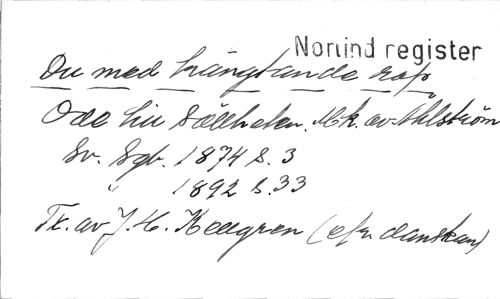 Norlind register
Du med hängtande rop
Ode till Sällheten. Mk. av Ahlström
Sv. Sgb. 1874 S. 3
" 1892 S. 33
Tx. av J. H. Kellgren (efr. danskan)